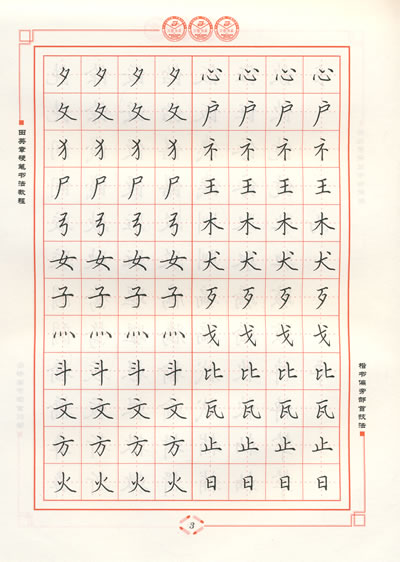 夕 夕 夕 夕 心 心 心 心
夂 夂 夂 夂 户 户 户 户
犭 犭 犭 犭 礻 礻 礻 礻
尸 尸 尸 尸 王 王 王 王
弓 弓 弓 弓 木 木 木 木
女 女 女 女 犬 犬 犬 犬
子 子 子 子 歹 歹 歹 歹
灬 灬 灬 灬 戈 戈 戈 戈
斗 斗 斗 斗 比 比 比 比
文 文 文 文 瓦 瓦 瓦 瓦
方 方 方 方 止 止 止 止
火 火 火 火 日 日 日 日
田英章硬笔书法教程
楷书偏旁部首技法
3